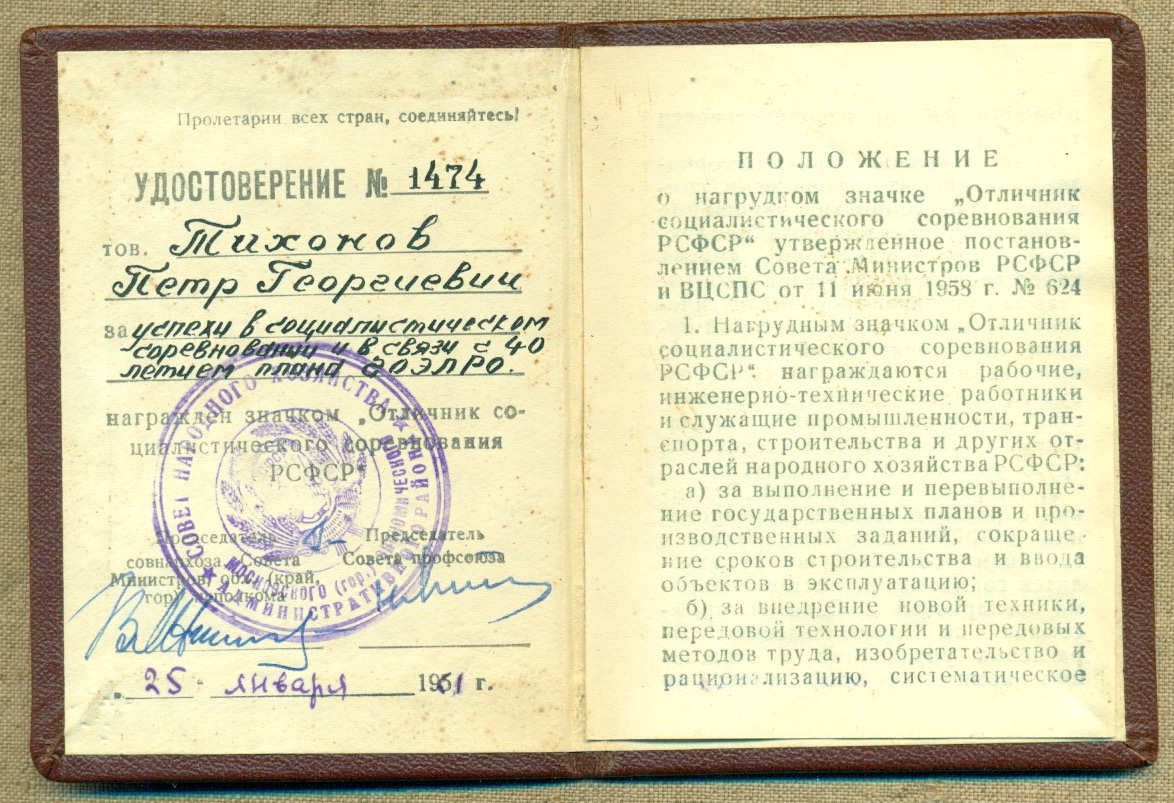 Пролетарии всех стран, соединяйтесь!
УДОСТОВЕРЕНИЕ № 1474
тов. Тихонов
Петр Георгиевич
за успехи в социалистическом
соревновании и в связи с 40
летием плана ГОЭЛРО.
награжден значком „Отличник со-
циалистического соревнования
РСФСР“
Председатель
совнархоза, Совета
Министров, обл. (край,
гор) исполкома
Председатель
Совета профсоюза
СОВЕТ НАРОДНОГО ХОЗЯЙСТВА
МОСКОВСКОГО (гор.) ЭКОНОМИЧЕСКОГО
АДМИНИСТРАТИВНОГО РАЙОНА
„ 25 “ января 1961 г.
ПОЛОЖЕНИЕ
о нагрудном значке „Отличник
социалистического соревнования
РСФСР“ утвержденное постанов-
лением Совета Министров РСФСР
и ВЦСПС от 11 июня 1958 г. № 624
1. Нагрудным значком „Отличник
социалистического соревнования
РСФСР“ награждаются рабочие,
инженерно-технические работники
и служащие промышленности, тран-
спорта, строительства и других от-
раслей народного хозяйства РСФСР:
а) за выполнение и перевыполне-
ние государственных планов и про-
изводственных заданий, сокраще-
ние сроков строительства и ввода
объектов в эксплуатацию;
б) за внедрение новой техники,
передовой технологии и передовых
методов труда, изобретательство и
рационализацию, систематическое